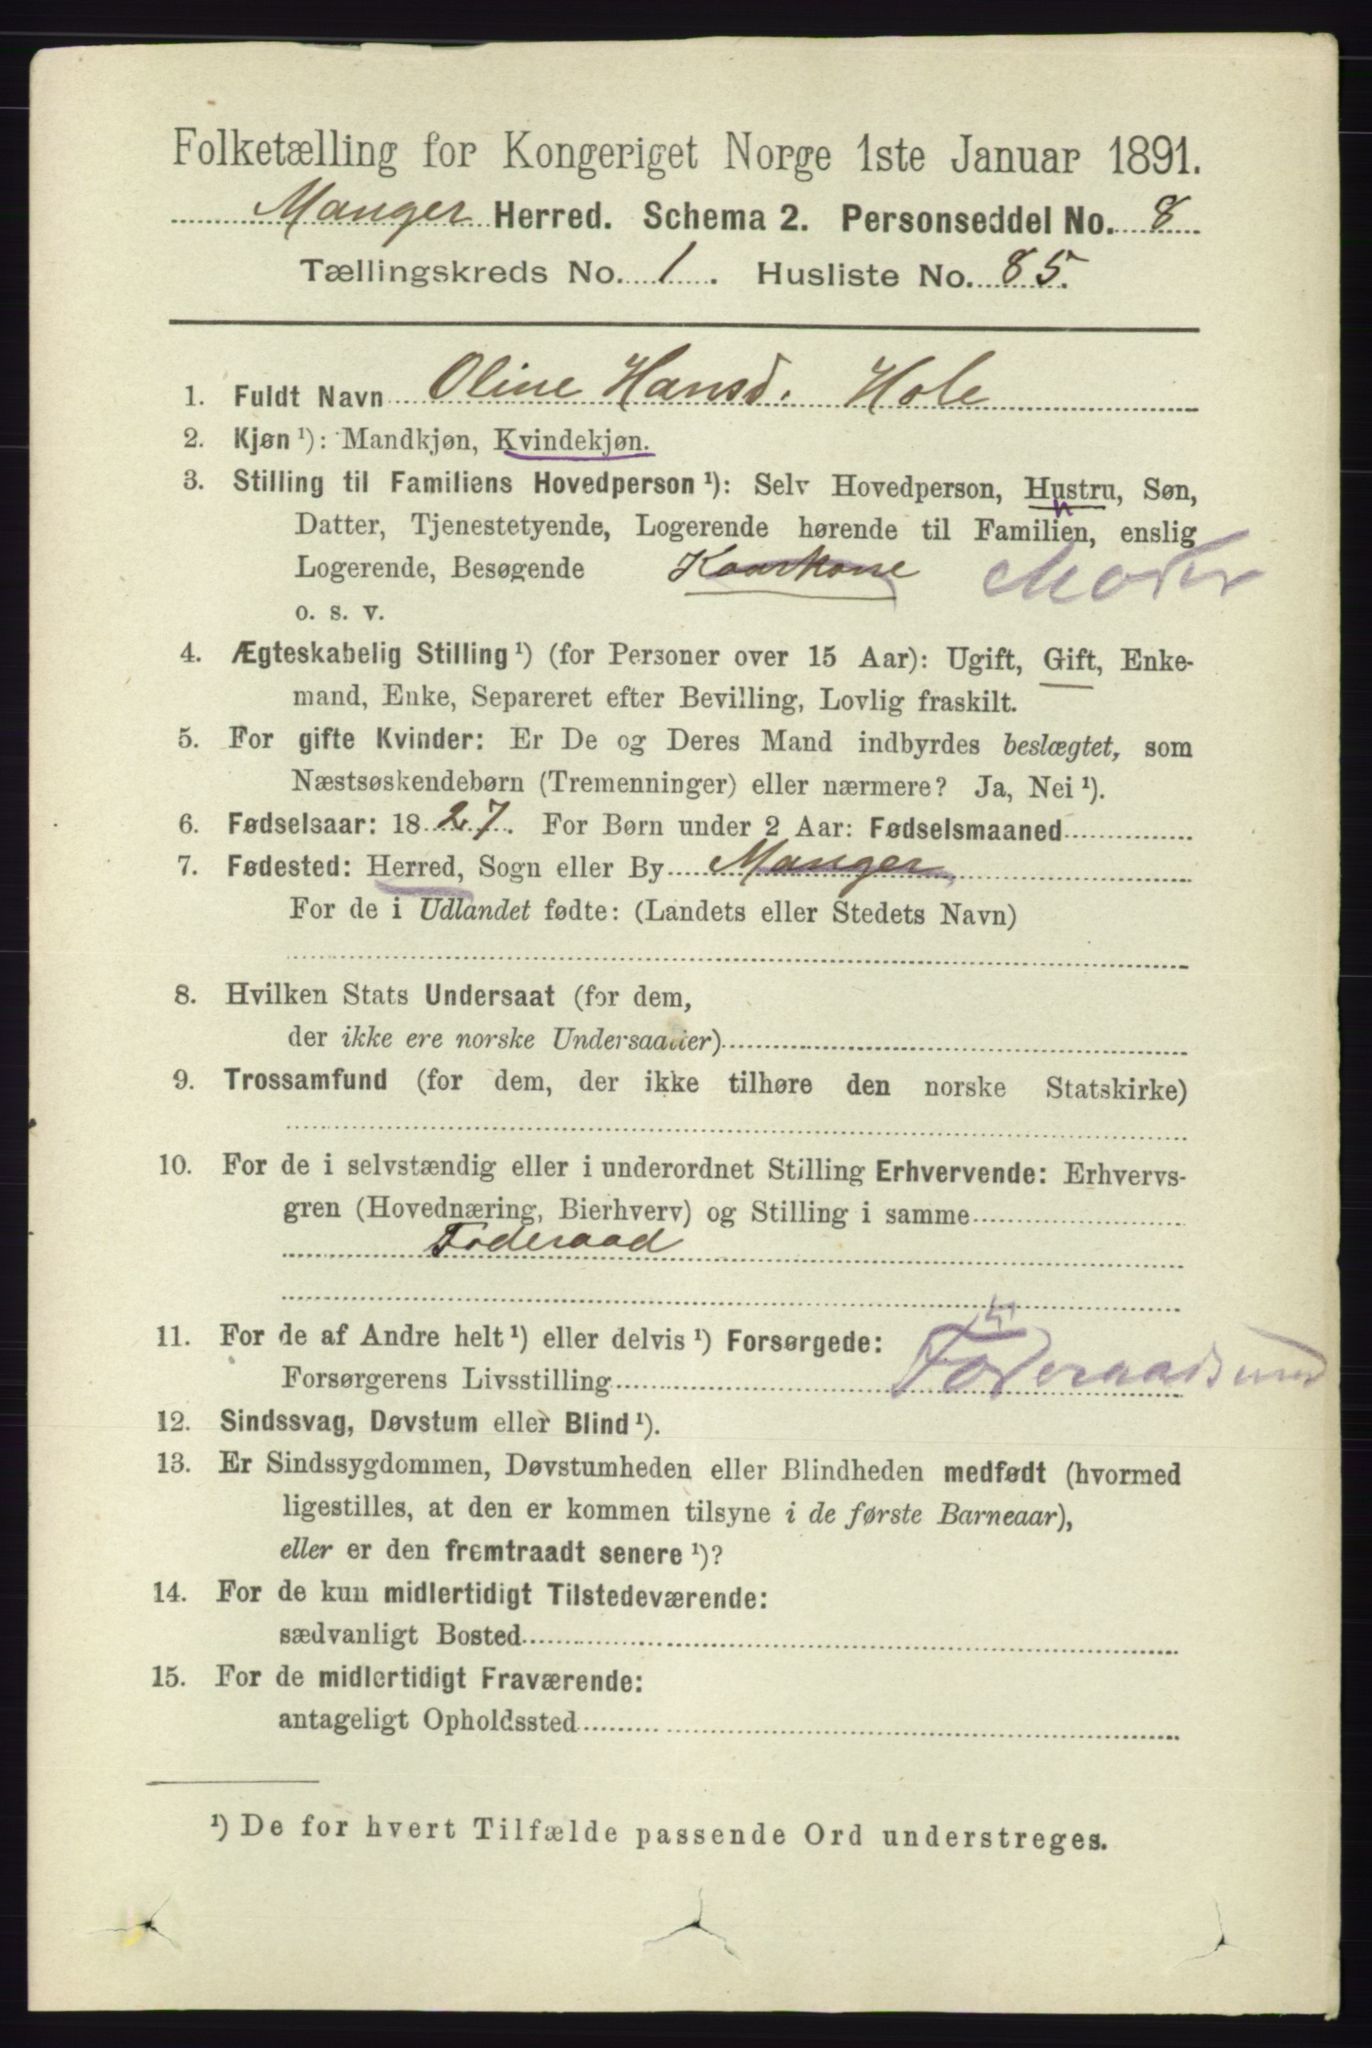 Folketælling for Kongeriget Norge 1ste Januar 1891.
Manger Herred. Schema 2. Personseddel No. 8
Tællingskreds No. 1. Husliste No. 85.
1. Fuldt Navn Oline Hansd. Hole
2. Kjøn ¹): Mandkjøn, Kvindekjøn.
3. Stilling til Familiens Hovedperson ¹): Selv Hovedperson, Hustru, Søn,
Datter, Tjenestetyende, Logerende hørende til Familien, enslig
Logerende, Besøgende Kaarkone Moder
o. s. v.
4. Ægteskabelig Stilling ¹) (for Personer over 15 Aar): Ugift, Gift, Enke-
mand, Enke, Separeret efter Bevilling, Lovlig fraskilt.
5. For gifte Kvinder: Er De og Deres Mand indbyrdes beslægtet, som
Næstsøskendebørn (Tremenninger) eller nærmere? Ja, Nei ¹).
6. Fødselsaar: 1827. For Børn under 2 Aar: Fødselsmaaned
7. Fødested: Herred, Sogn eller By Manger
For de i Udlandet fødte: (Landets eller Stedets Navn)
8. Hvilken Stats Undersaat (for dem,
der ikke ere norske Undersaatter)
9. Trossamfund (for dem, der ikke tilhøre den norske Statskirke)
10. For de i selvstændig eller i underordnet Stilling Erhvervende: Erhvervs-
gren (Hovednæring, Bierhverv) og Stilling i samme
Foderaad
11. For de af Andre helt ¹) eller delvis ¹) Forsørgede:
Forsørgerens Livsstilling
12. Sindssvag, Døvstum eller Blind ¹).
13. Er Sindssygdommen, Døvstumheden eller Blindheden medfødt (hvormed
ligestilles, at den er kommen tilsyne i de første Barneaar),
eller er den fremtraadt senere ¹)?
14. For de kun midlertidigt Tilstedeværende:
sædvanligt Bosted
15. For de midlertidigt Fraværende:
antageligt Opholdssted
¹) De for hvert Tilfælde passende Ord understreges.